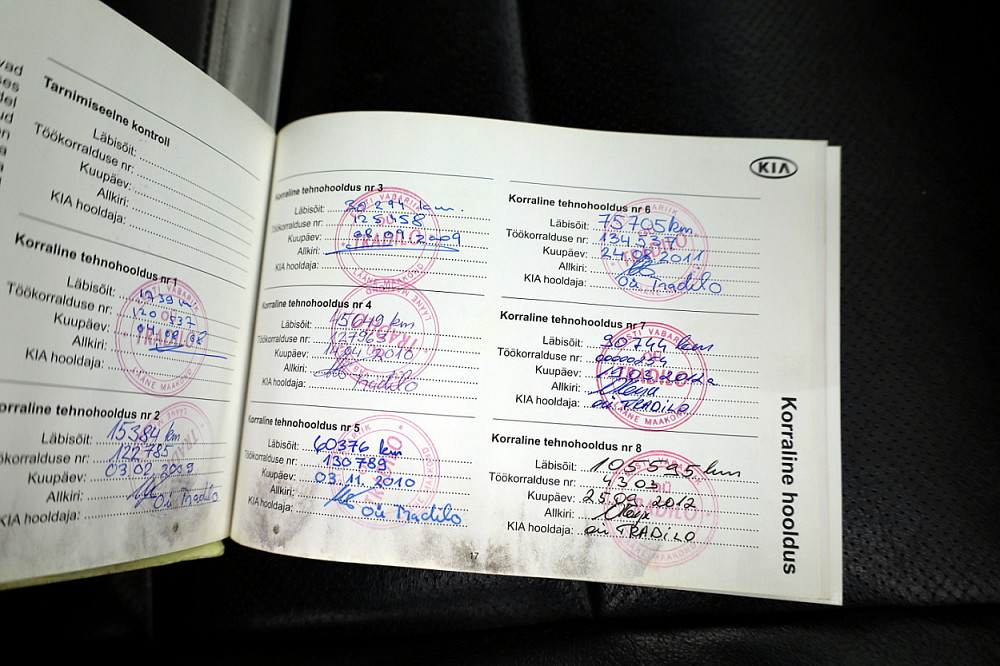 Tarnimiseelne kontroll
Läbisõit:
Töökorralduse nr:
Kuupäev:
Allkiri:
KIA hooldaja:
Korraline tehnohooldus nr 1
Läbisõit: 1739
Töökorralduse nr: 120537
Kuupäev:
Allkiri:
KIA hooldaja:
Korraline tehnohooldus nr 2
Läbisõit: 15384 km
Töökorralduse nr: 122785
Kuupäev: 03.02.2009
Allkiri:
KIA hooldaja: Oü Tradilo
Korraline tehnohooldus nr 3
Läbisõit: 30294 km.
Töökorralduse nr: 125458
Kuupäev: 08.09.2009
Allkiri:
KIA hooldaja:
Korraline tehnohooldus nr 4
Läbisõit: 45649 km
Töökorralduse nr:
Kuupäev: 14.04.2010
Allkiri:
KIA hooldaja: Oü Tradilo
Korraline tehnohooldus nr 5
Läbisõit: 60376 km
Töökorralduse nr: 130789
Kuupäev: 03.11.2010
Allkiri:
KIA hooldaja: Oü Tradilo
17
KIA
Korraline tehnohooldus nr 6
Läbisõit: 75705 km
Töökorralduse nr: 134537
Kuupäev:
Allkiri:
KIA hooldaja: Oü Tradilo
Korraline tehnohooldus nr 7
Läbisõit: 90744 km
Töökorralduse nr:
Kuupäev: 19.03.2012a
Allkiri:
KIA hooldaja: oü TRADILO
Korraline tehnohooldus nr 8
Läbisõit: 105595 km
Töökorralduse nr: 4303
Kuupäev: 25.09.2012
Allkiri:
KIA hooldaja: oü TRADILO
Korraline hooldus